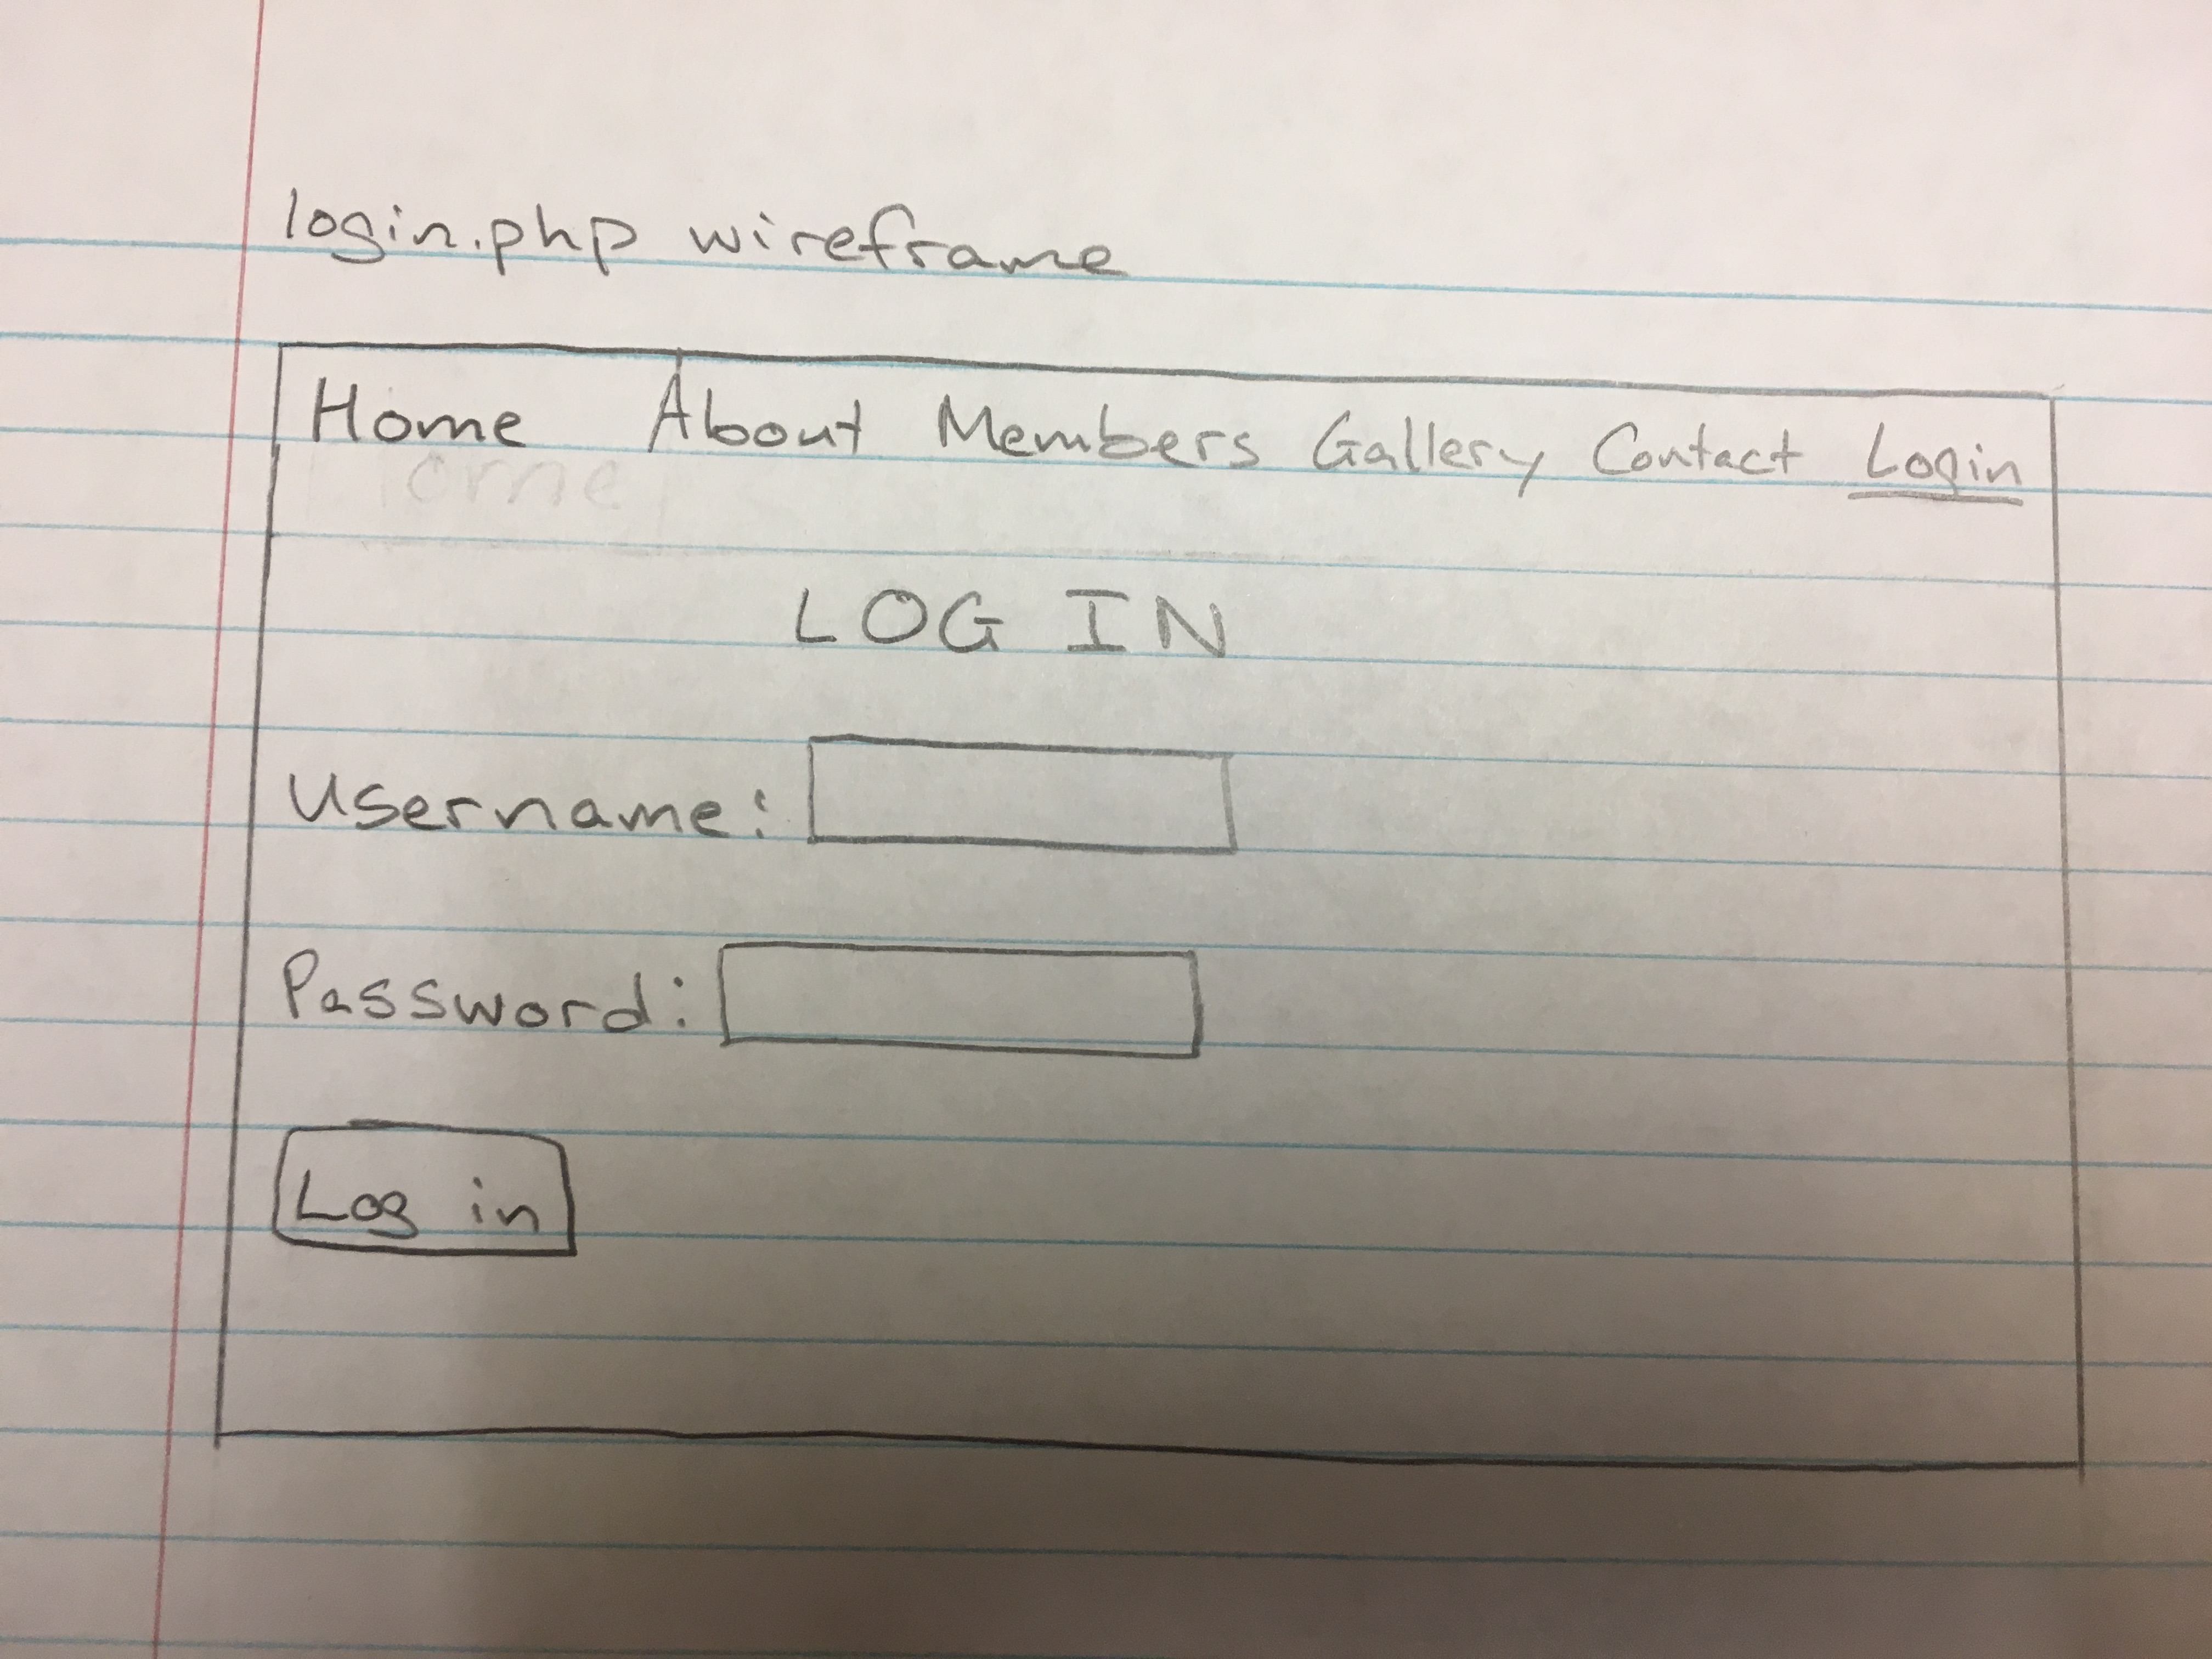 login.php wireframe
Home About Members Gallery Contact Login
LOG IN
Username:
Password:
Log in